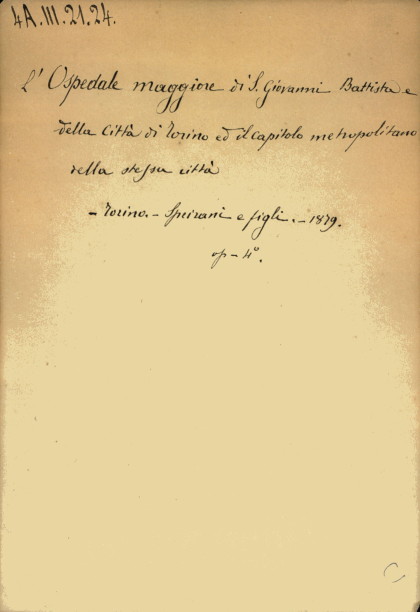 4A.III.21.24.
L'Ospedale maggiore di S. Giovanni Battista e
della Città di Torino ed il capitolo metropolitano
della stessa città
- Torino. - Speirani e figli. - 1879.
op - 4°.